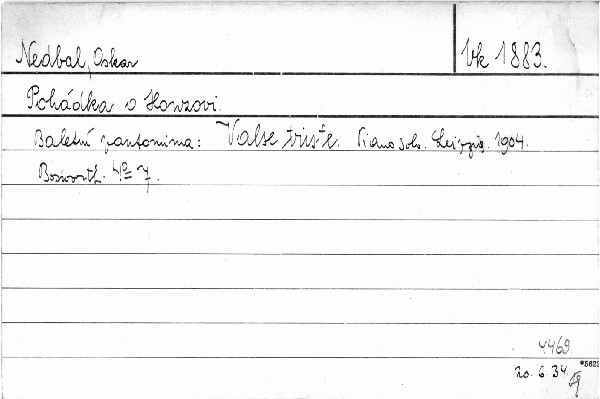 Nedbal, Oskar
Vk 1883.
Pohádka o Honzovi.
Baletní pantomima: Valse triste. Piano solo. Leipzig. 1904.
Bosworth. 4º 7.
4469
*5622
20. 6. 34.